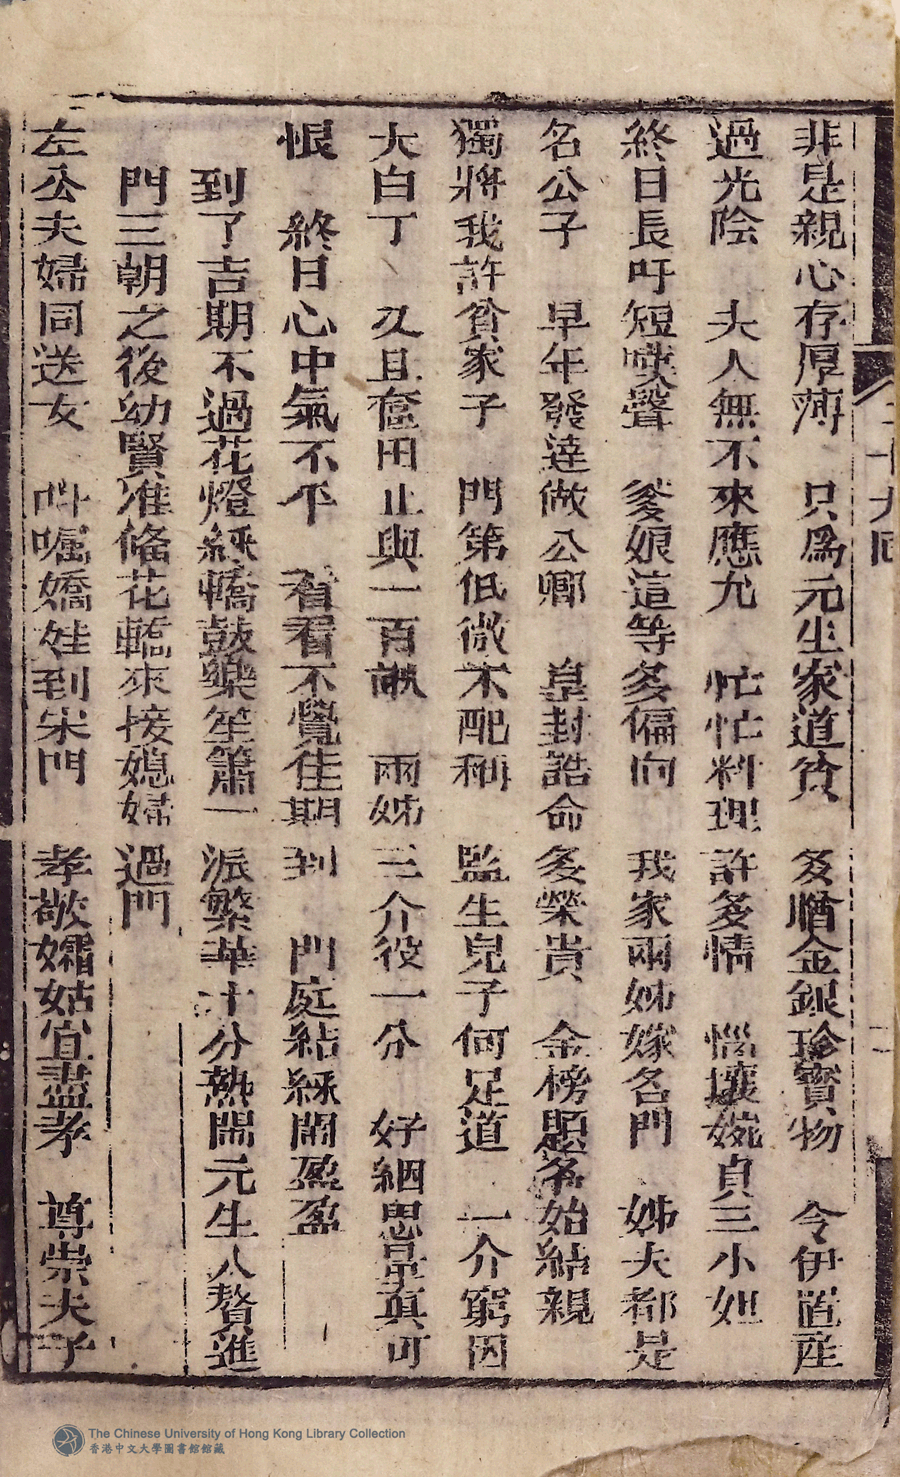 二十九回
非是親心存厚薄　只爲元生家道貧　多贈金銀珍寶物　令伊置産
過光陰　夫人無不來應允　忙忙料理許多情　惱壞婉貞三小姐
終日長吁短嘆聲　爹娘這等多偏向　我家兩姊嫁名門　姊夫都是
名公子　早年發達做公卿　皇封誥命多榮貴　金榜題名始結親
獨將我許貧家子　門第低微不配稱　監生兒子何足道　一介窮因
大白丁　又且奩田止與一百畝　兩姊三介役一分　好絪思量真可
恨　終日心中氣不平　看看不覺佳期到　門庭結綵鬧盈盈
到了吉期不過花燈綵轎鼓樂笙簫一派繁華十分熱鬧元生入贅進
門三朝之後幼賢准備花轎來接媳婦過門
左公夫婦同送女　叫囑嬌娃到宋門　孝敬孀姑宜盡孝　尊崇夫子
The Chinese University of Hong Kong Library Collection
香港中文大學圖書館館藏